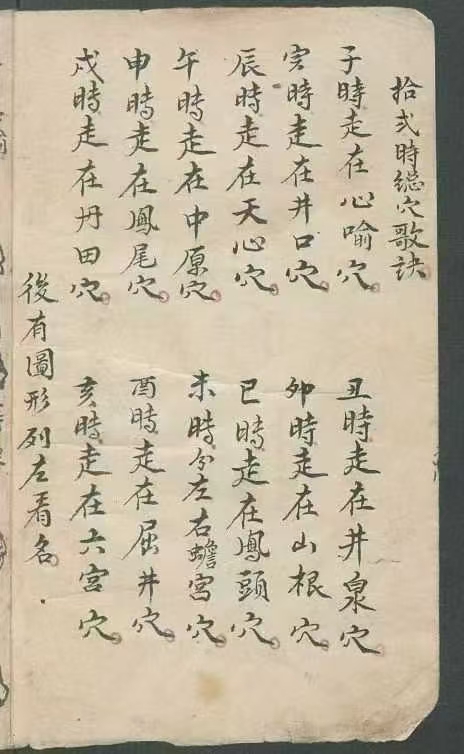 拾弍時総穴歌訣
子時走在心喻穴
丑時走在井泉穴
寅時走在井口穴
卯時走在山根穴
辰時走在天心穴
巳時走在鳳頭穴
午時走在中原穴
未時分左右蟾宮穴
申時走在鳳尾穴
酉時走在屈井穴
戌時走在丹田穴
亥時走在六宮穴
後有圖形列左看名